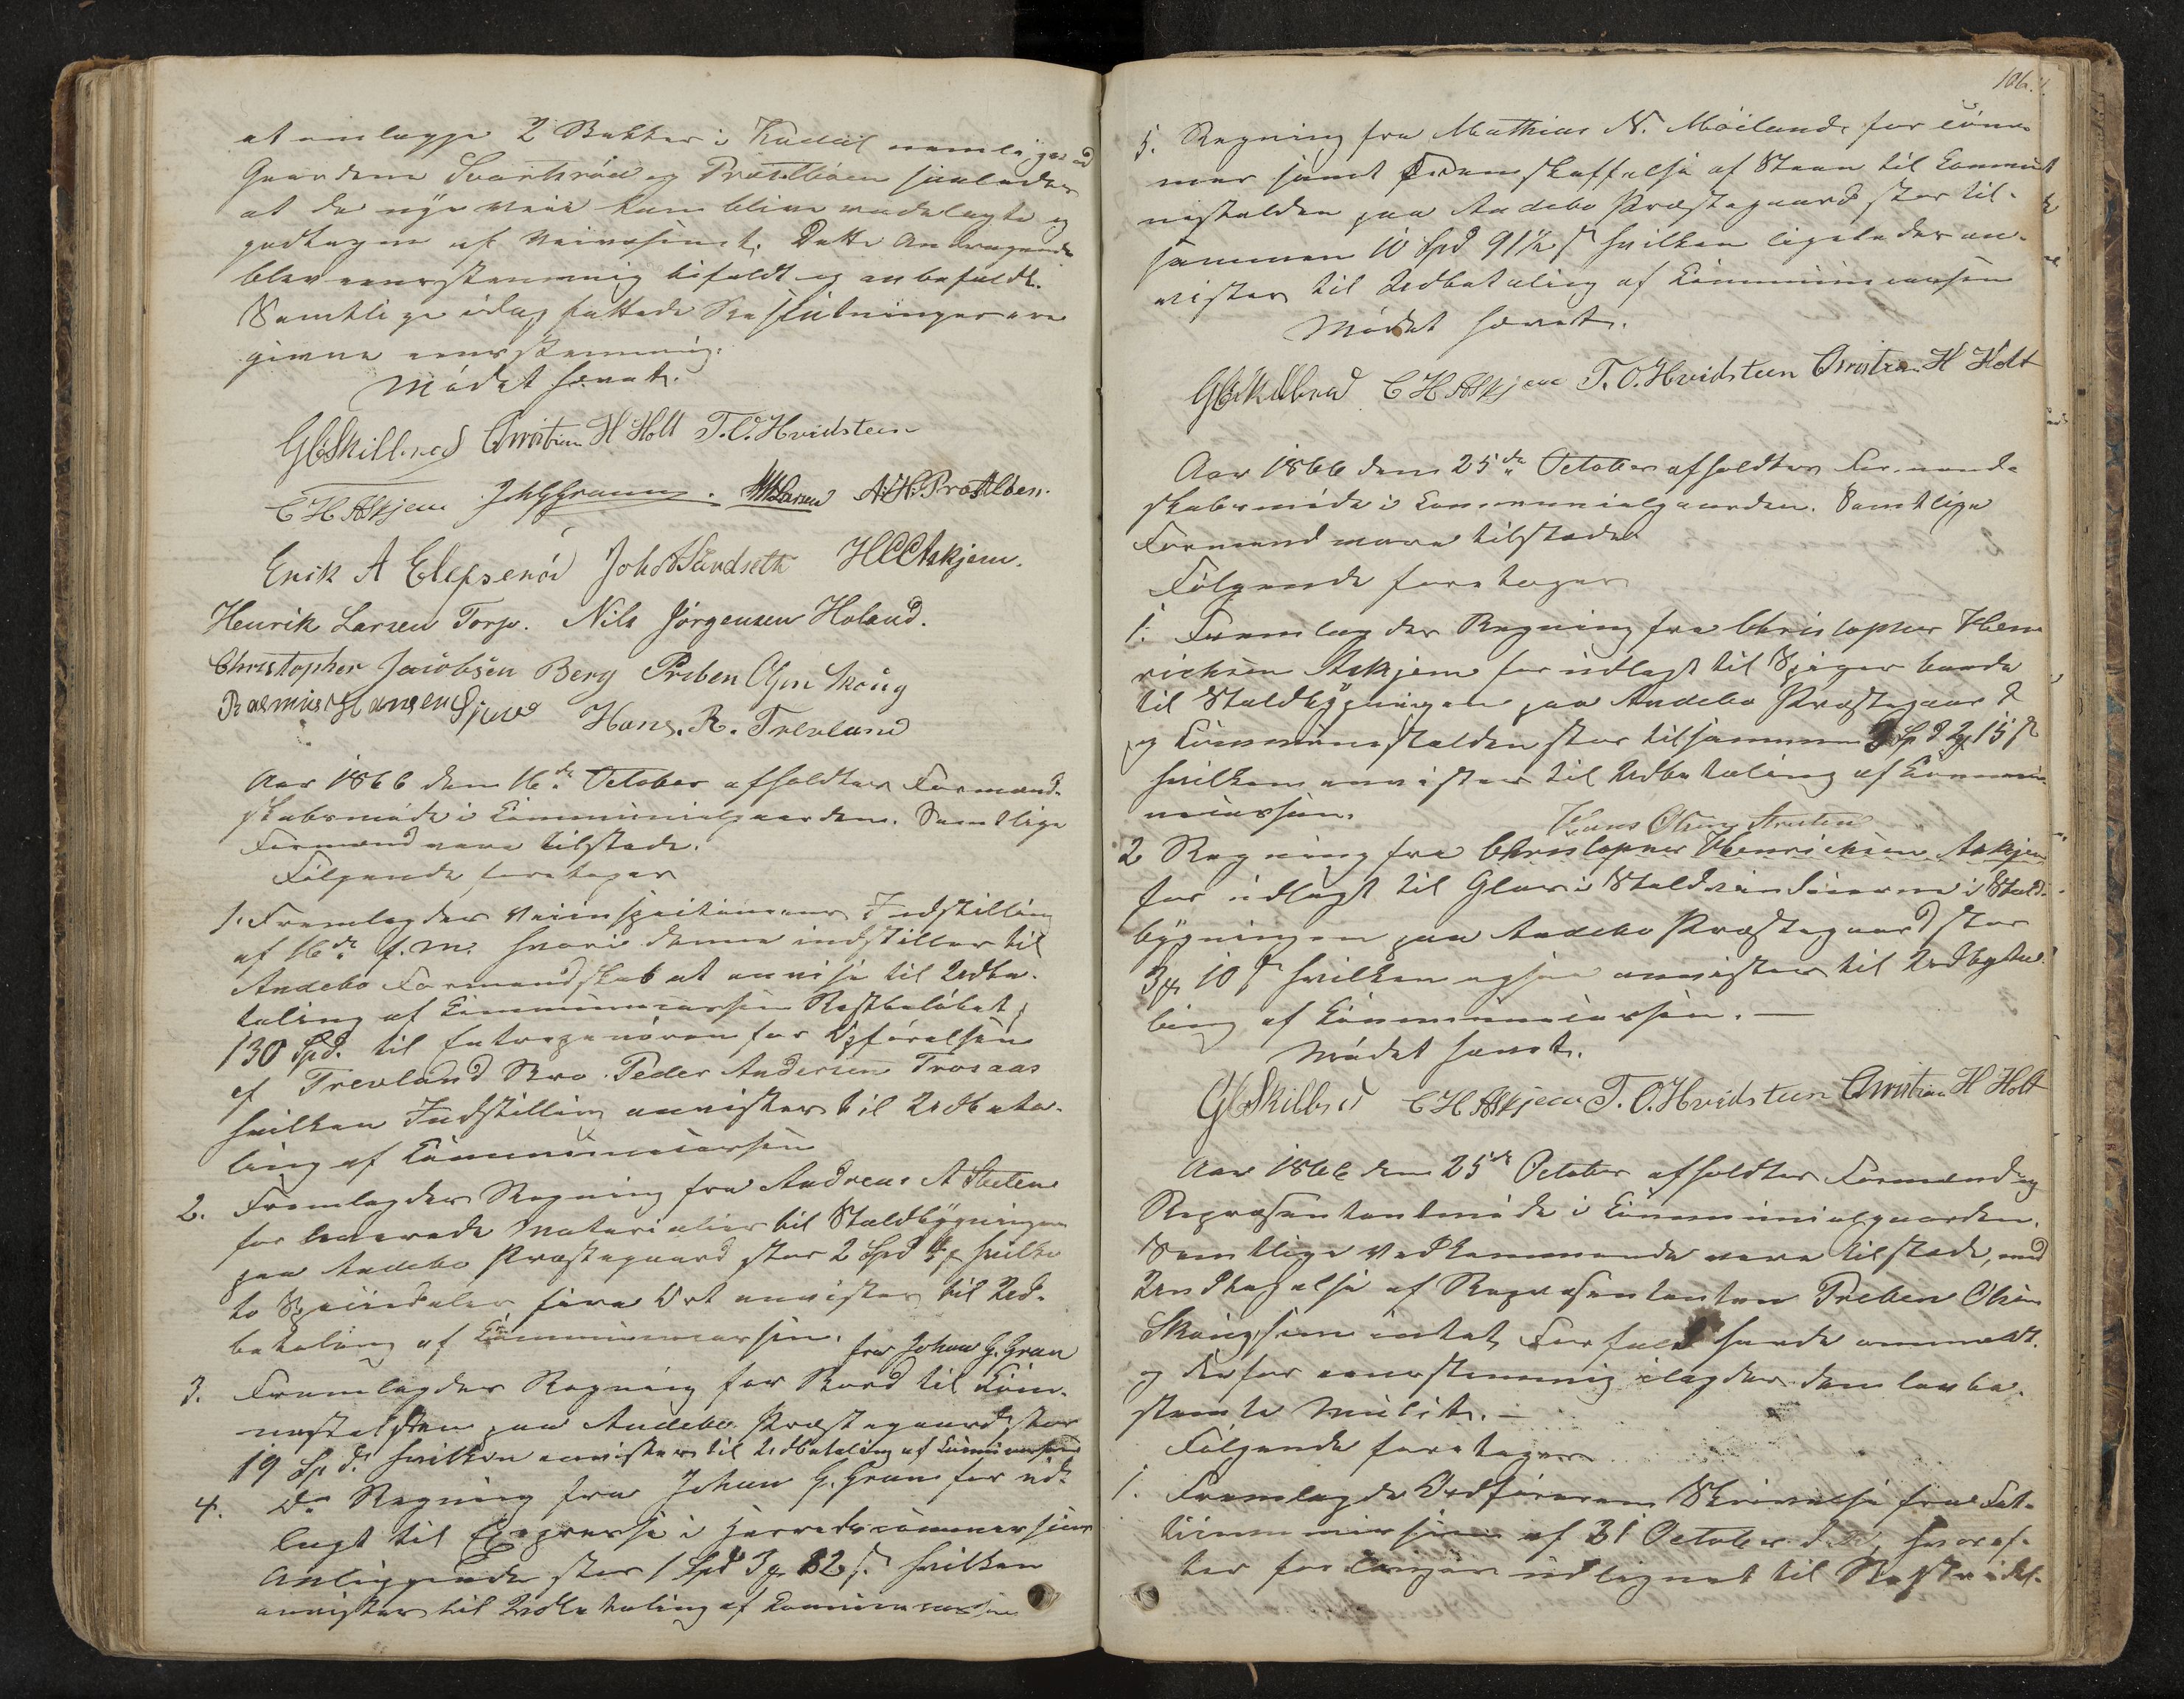 at omlægge 2 Bakker i Kodal nemlig ved
Gaardene Svartsrød og Prestbøen saaledes
at de nye veie kan blive modtagte og
godtagne af Veivæsenet. Dette Andragende
blev eenstemmig bifaldt og anbefaldt.
Samtlige idag fattede Beslutninger ere
givne eenstemmig.
Mødet hævet.
G C Skilbred Christian H Holt T. O. Hvidsteen
C H Askjem Joh G Gram M Larsen A. H. Præstbøen.
Erik A Ellefsenrød Joh A Sundseth H C C Askjem.
Henrik Larsen Torp. Nils Jørgensen Høland.
Christopher Jacobsen Berg Preben Olsen Skoug
Rasmus Hansen Hans. R. Trevland
Aar 1866 den 16de October afholdtes Formand-
skabsmøde i Communielgaarden. Samtlige
Formænd vare tilstede.
Følgende foretoges
1. Fremlagdes Veiinspecteurens Indstilling
af 16de f. m. hvori denne indstiller til
Andebo Formandskab at anvise til Udbe-
taling af Communecassen Restbeløbet
130 Spd. til Entreprenøren for Opførelsen
af Trevland Bro Peder Andersen Trosaas
hvilken Indstilling anvistes til Udbeta-
ling af Communecassen
2. Fremlagdes Regning fra Andreas A Stulen
for leverede Materialier til Staldbygningen
paa Andebo Præstegaard stor 2 Spd 4 ort hvilke
to Speciedaler fire Ort anvistes til Ud-
betaling af Communecassen.
fra Johan G. Gram
3. Fremlagdes Regning for Bord til Com-
munestalden paa Andebo Præstegaard stor
19 Spd. hvilken anvistes til Udbetaling af Communecassen
4. Do Regning fra Johan G. Gram for ud-
lagt til Expresse i Herredscommissions
Anliggende stor 1 Spd 3 ort 82 s. hvilken
anvistes til Udbetaling af Communecassen
106.
5. Regning fra Mathias N. Møiland for
samt Fremskaffelse af Steen til Commu-
nestalden paa Andebo Præstegaard stor til-
sammen 10 Spd 91½ s hvilken ligeledes an-
vistes til Udbetaling af Communecassen
Mødet hævet.
G C Skilbred C H Askjem T. O. Hvidsteen Christian H Holt
Aar 1866 den 25de October afholdtes Formand-
skabsmøde i Communielgaarden. Samtlige
Formænd vare tilstede
Følgende foretoges
1. Fremlagdes Regning fra Christopher Hen
richsen Askjem for udlagt til Spiger baade
til Staldbygningen paa Andebo Præstegaard
og Communestalden stor tilsammen Spd 15 s
hvilken anvistes til Udbetaling af Commu-
necassen.
Hans Olsen
2 Regning fra Christopher Henrichsen Askjem
for udlagt til Glas i Staldvinduerne i Stald-
bygningen paa Andebo Præstegaard stor
3 ort 10 s hvilken ogsaa anvistes til Udbeta-
ling af Communecassen. —
Mødet hævet.
G C Skilbred C H Askjem T. O. Hvidsteen Christian H Holt
Aar 1866 den 25de October afholdtes Formand og
Repræsentantmøde i Communielgaarden.
Samtlige Vedkommende vare tilstede, med
Undtagelse af Repræsentanten Preben Olsen
Skoug som intet Forfald havde anmeldt
og derfor eenstemmig ilagdes den lovbe-
stemte Mulct. —
Følgende foretoges
1. Fremlagde Ordføreren Skrivelse fra Fat-
tigcommissionen af 21 October d. A., hvoref-
ter forlanges udlignet til